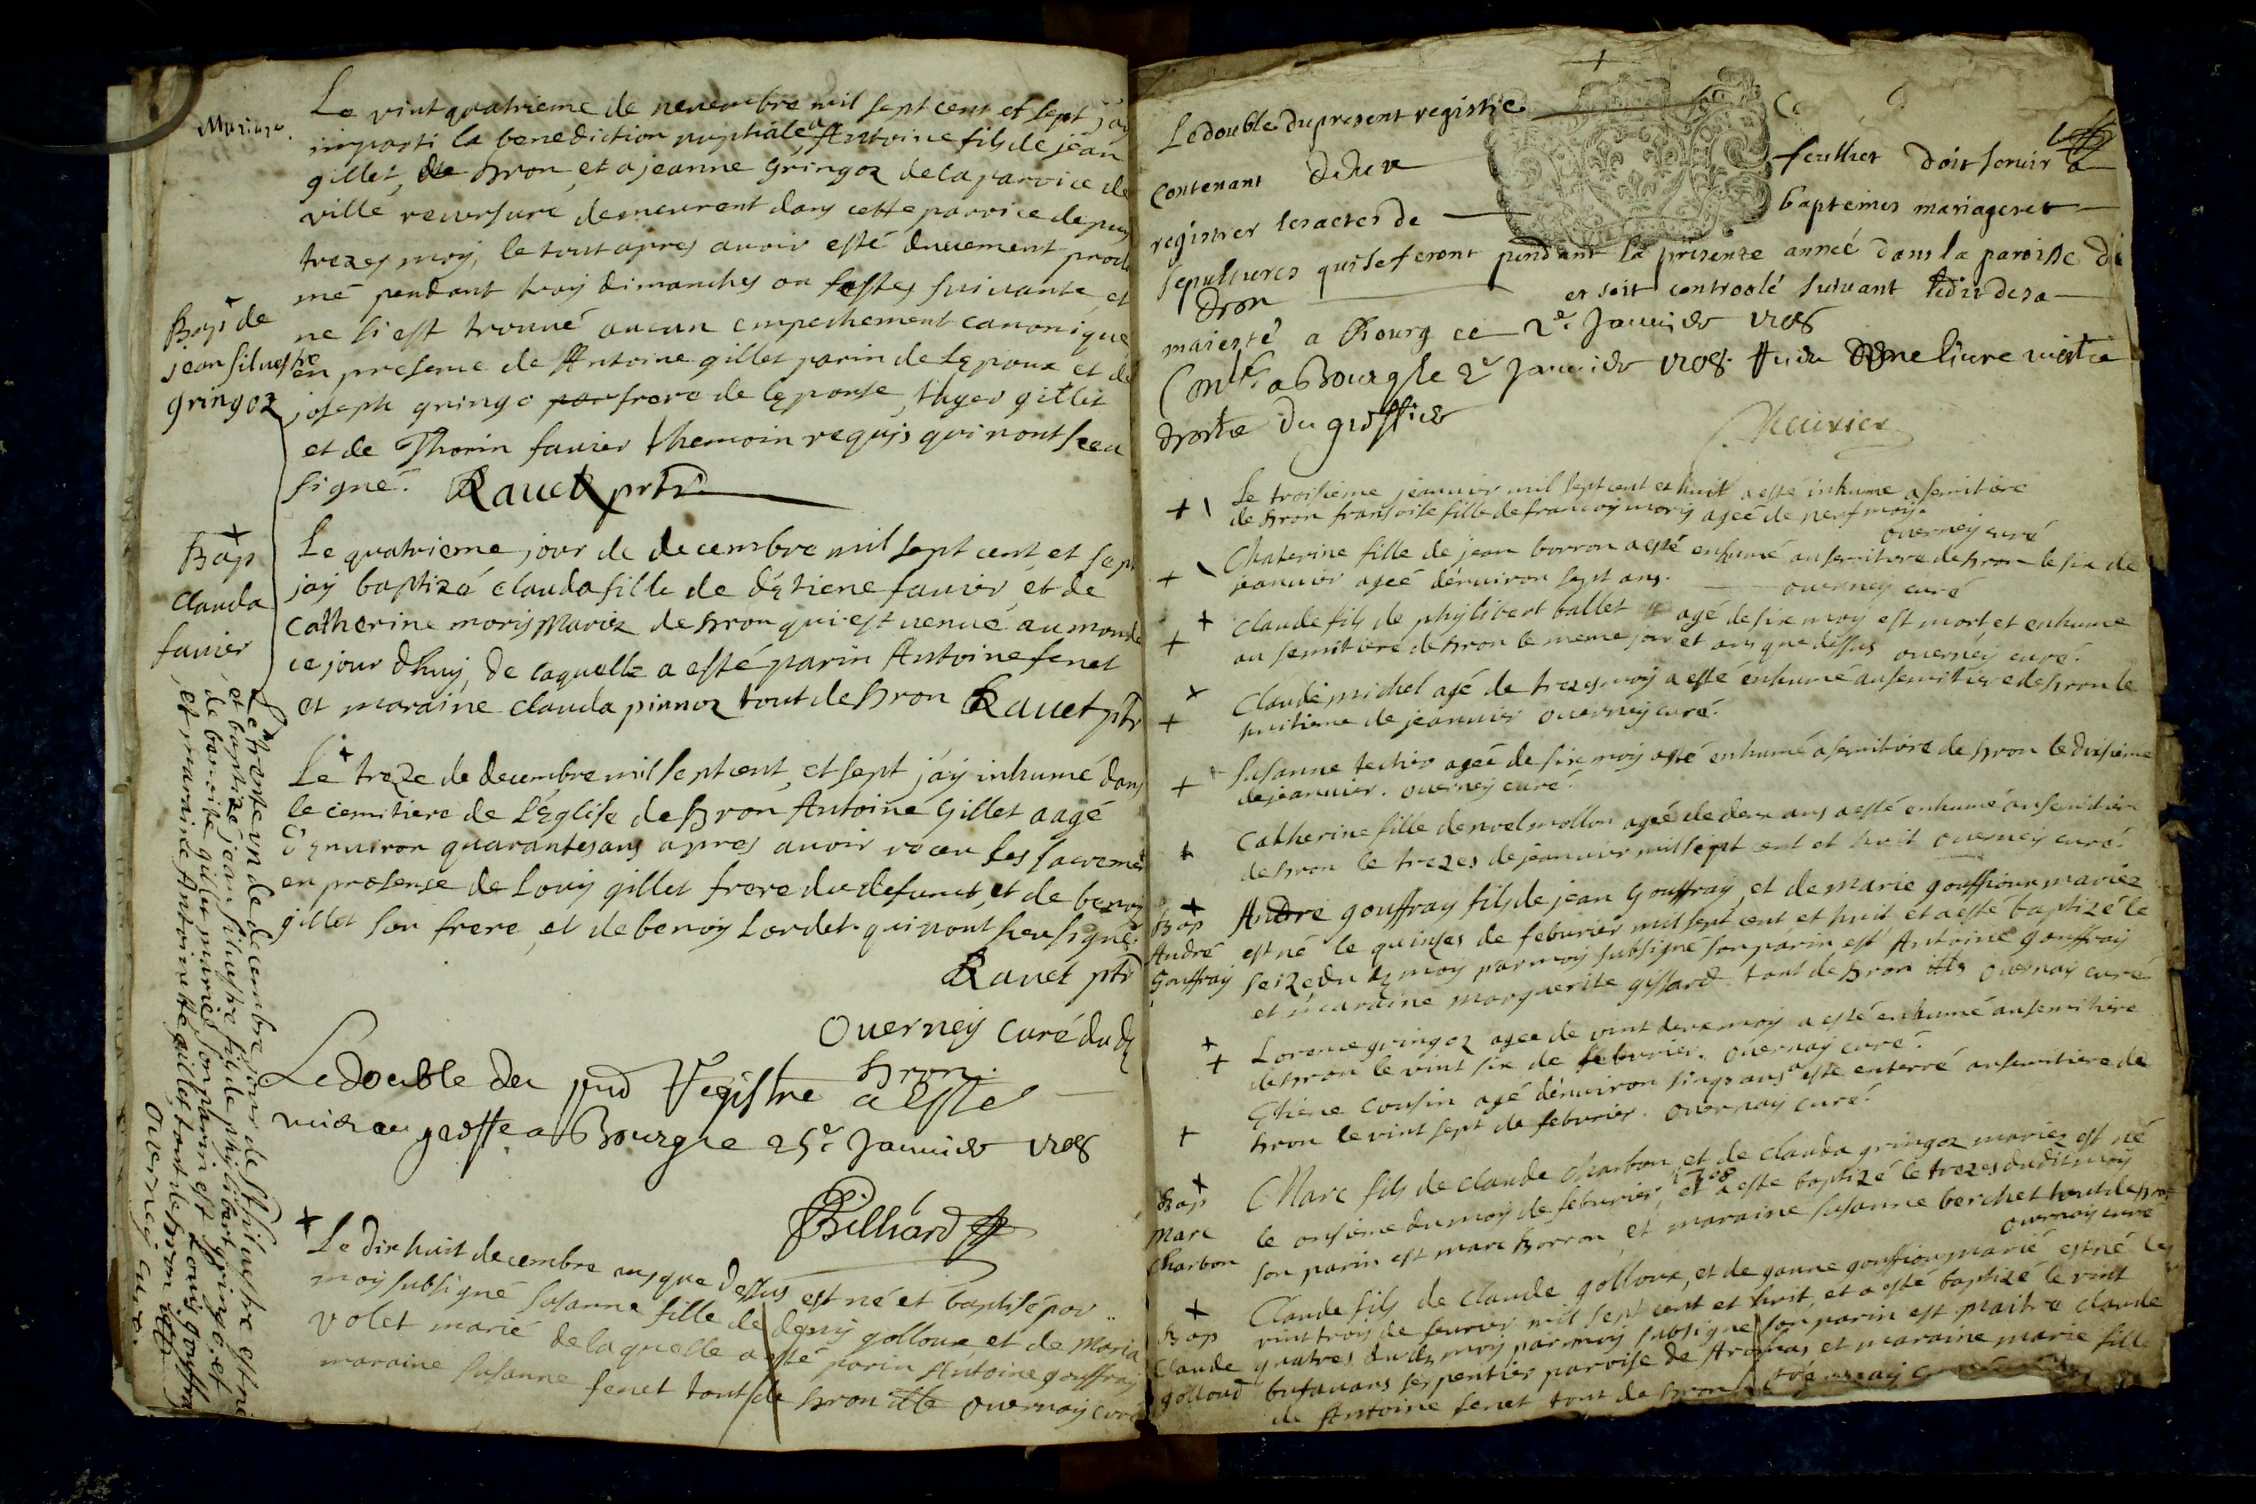 Mariage.
Le vint quatrieme de nevembre mil sept cent et sept jay
imparti la benediction nuptiale a Antoine fils de jean
gillet, de Dron, et a jeanne Gringoz de la paroice de
ville reversure demeurent dans cette parroice depuis
trezes moy, le tout apres avoir esté duuement procla
mé pendant troy dimanches ou festes suivante, et
ne si est trouué aucun empechement canonique
en presence de Antoine gillet parin de lepoux et de
joseph gringo frere de leponse, gillet
et de Thorin favier themoin requis qui nont sceu
signé. Ravet ptr
Bap de
jean silvestre
gringoz
+
Bap
clauda
favier
Le quatrieme jour de decembre mil sept cent et sept
jay baptizé clauda fille de détiene favier, et de
catherine moris mariez de Dron qui est venue au monde
ce jour dhuy, de laquelle a esté parin Antoine fenet
et maraine clauda pinnoz tout de Dron Ravet ptr
+
Le treze de decembre mil sept cent, et sept jay inhumé dans
le cemitiere de LEglise de Dron Antoine Gillet aagé
denviron quarantes ans apres avoir receu les sacremen
en presense de Louis gillet frere du defunct, et de benoy
gillet son frere, et de benoy Lordet qui nont sceu signé.
Ravet ptr
Overney curé dud
Dron.
Le double du pnt Registre a esté
mis au greffe a Bourg le 25e Janvier 1708
Billiard
+ Le dix huit decembre ans que dessus est né et baptisé par
moy subsigné Susanne fille de denis golloux, et de Maria
volet marié de laquelle a esté parin Antoine gouffray
maraine susanne fenet tout de Dron overnay curé
Le trente un de decembre jour de st silvestre est né
et baptizé jean silvestre fils de phylibert gringo, et
de benoite gillet mariés son parin est Louis gouffra
et maraine Antoinette gillet tout de Dron
overney curé.
+
Le double du present registre
contenant deux feullies doit servir a
registrer les actes de baptemes mariages et
sepultures qui se feront pendant la presente année dans la paroisse de
Dron et soit controolé suivant ledit de sa
majesté a Bourg ce 2e Janvier 1708
Contlé a Bourg le 2e Janvier 1708
du greffier
+ Le troisieme jeanvier mil sept cent et huit a esté inhume a semitiere
de Dron fransoise fille de francoy moris ageé de neuf moys.
overney curé
+ Chaterine fille de jean borron a esté enhumé au semitiere de Dron le six de
jeanvier ageé dénviron sept ans. overney curé
+ Claude fils de phylibert ballet agé de six moy est mort et enhume
+ au semitiere de Dron le meme jour et ans que dessus overney curé.
+ Claude michel agé de trezes moy a esté enhumé au semitiere de Dron le
+ huitieme de jeanvier overney curé.
+ Susanne techer ageé de six moy a esté enhumé a semitiere de Dron le dixsieme
de jeanvier. overney curé.
+ Catherine fille de noel mollon ageé de deux ans a esté enhumé au semitiere
de Dron le trezes de jeanvier mil sept cent et huit overney curé.
+
Bap
André
Gouffray
André gouffray fils de jean Gouffray, et de marie gouffioux mariez
est né le quinses de febvrier mil sept cent, et huit et a esté baptizé le
seize du dt moy par moy subsigné son parin est Antoine gouffray
et maraine marguerite gissard. tout de Dron overnay curé
+ Lorence gringoz agee de vint deux moy a esté enhumé au semitiere
+ de Dron le vint six de febvrier. overnay curé.
Etiene cousin agé dénviron sinqs ans a esté enterré au semitiere de
+ Dron le vint sept de febvrier. overnay curé.
+
Bap
Marc
Charbon
Marc fils de claude Charbon, et de clauda gringoz mariez est né
le onsieme du moy de febvrier, 1708 et a este baptizé le trezes dudit moy
son parin est marc borron et maraine susanne berchet tout de Dron
overnay curé
+
Bap
Claude
golloud
Claude fils de claude golloux, et de ganne gouffion marié est né le
vint troy de fevrier mil sept cent et huit, et a esté baptizé le vint
quatres du dt moy par moy subsigne son parin est maitre claude
butavans serpentier paroise de Aromas et maraine marie fille
de Antoine fenet tout de Dron